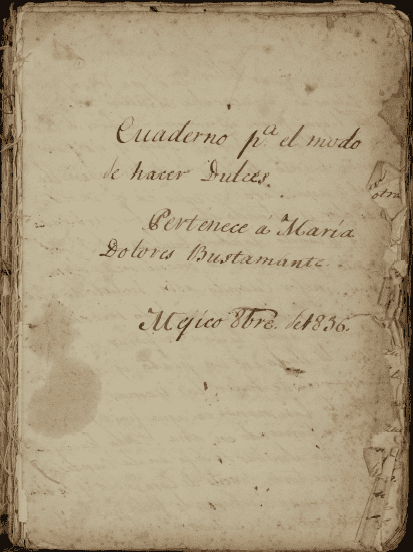 Cuaderno pª el modo
de hacer Dulces.
Pertenece á María
Dolores Bustamante.
Mejico 8bre. de 1836.
otra